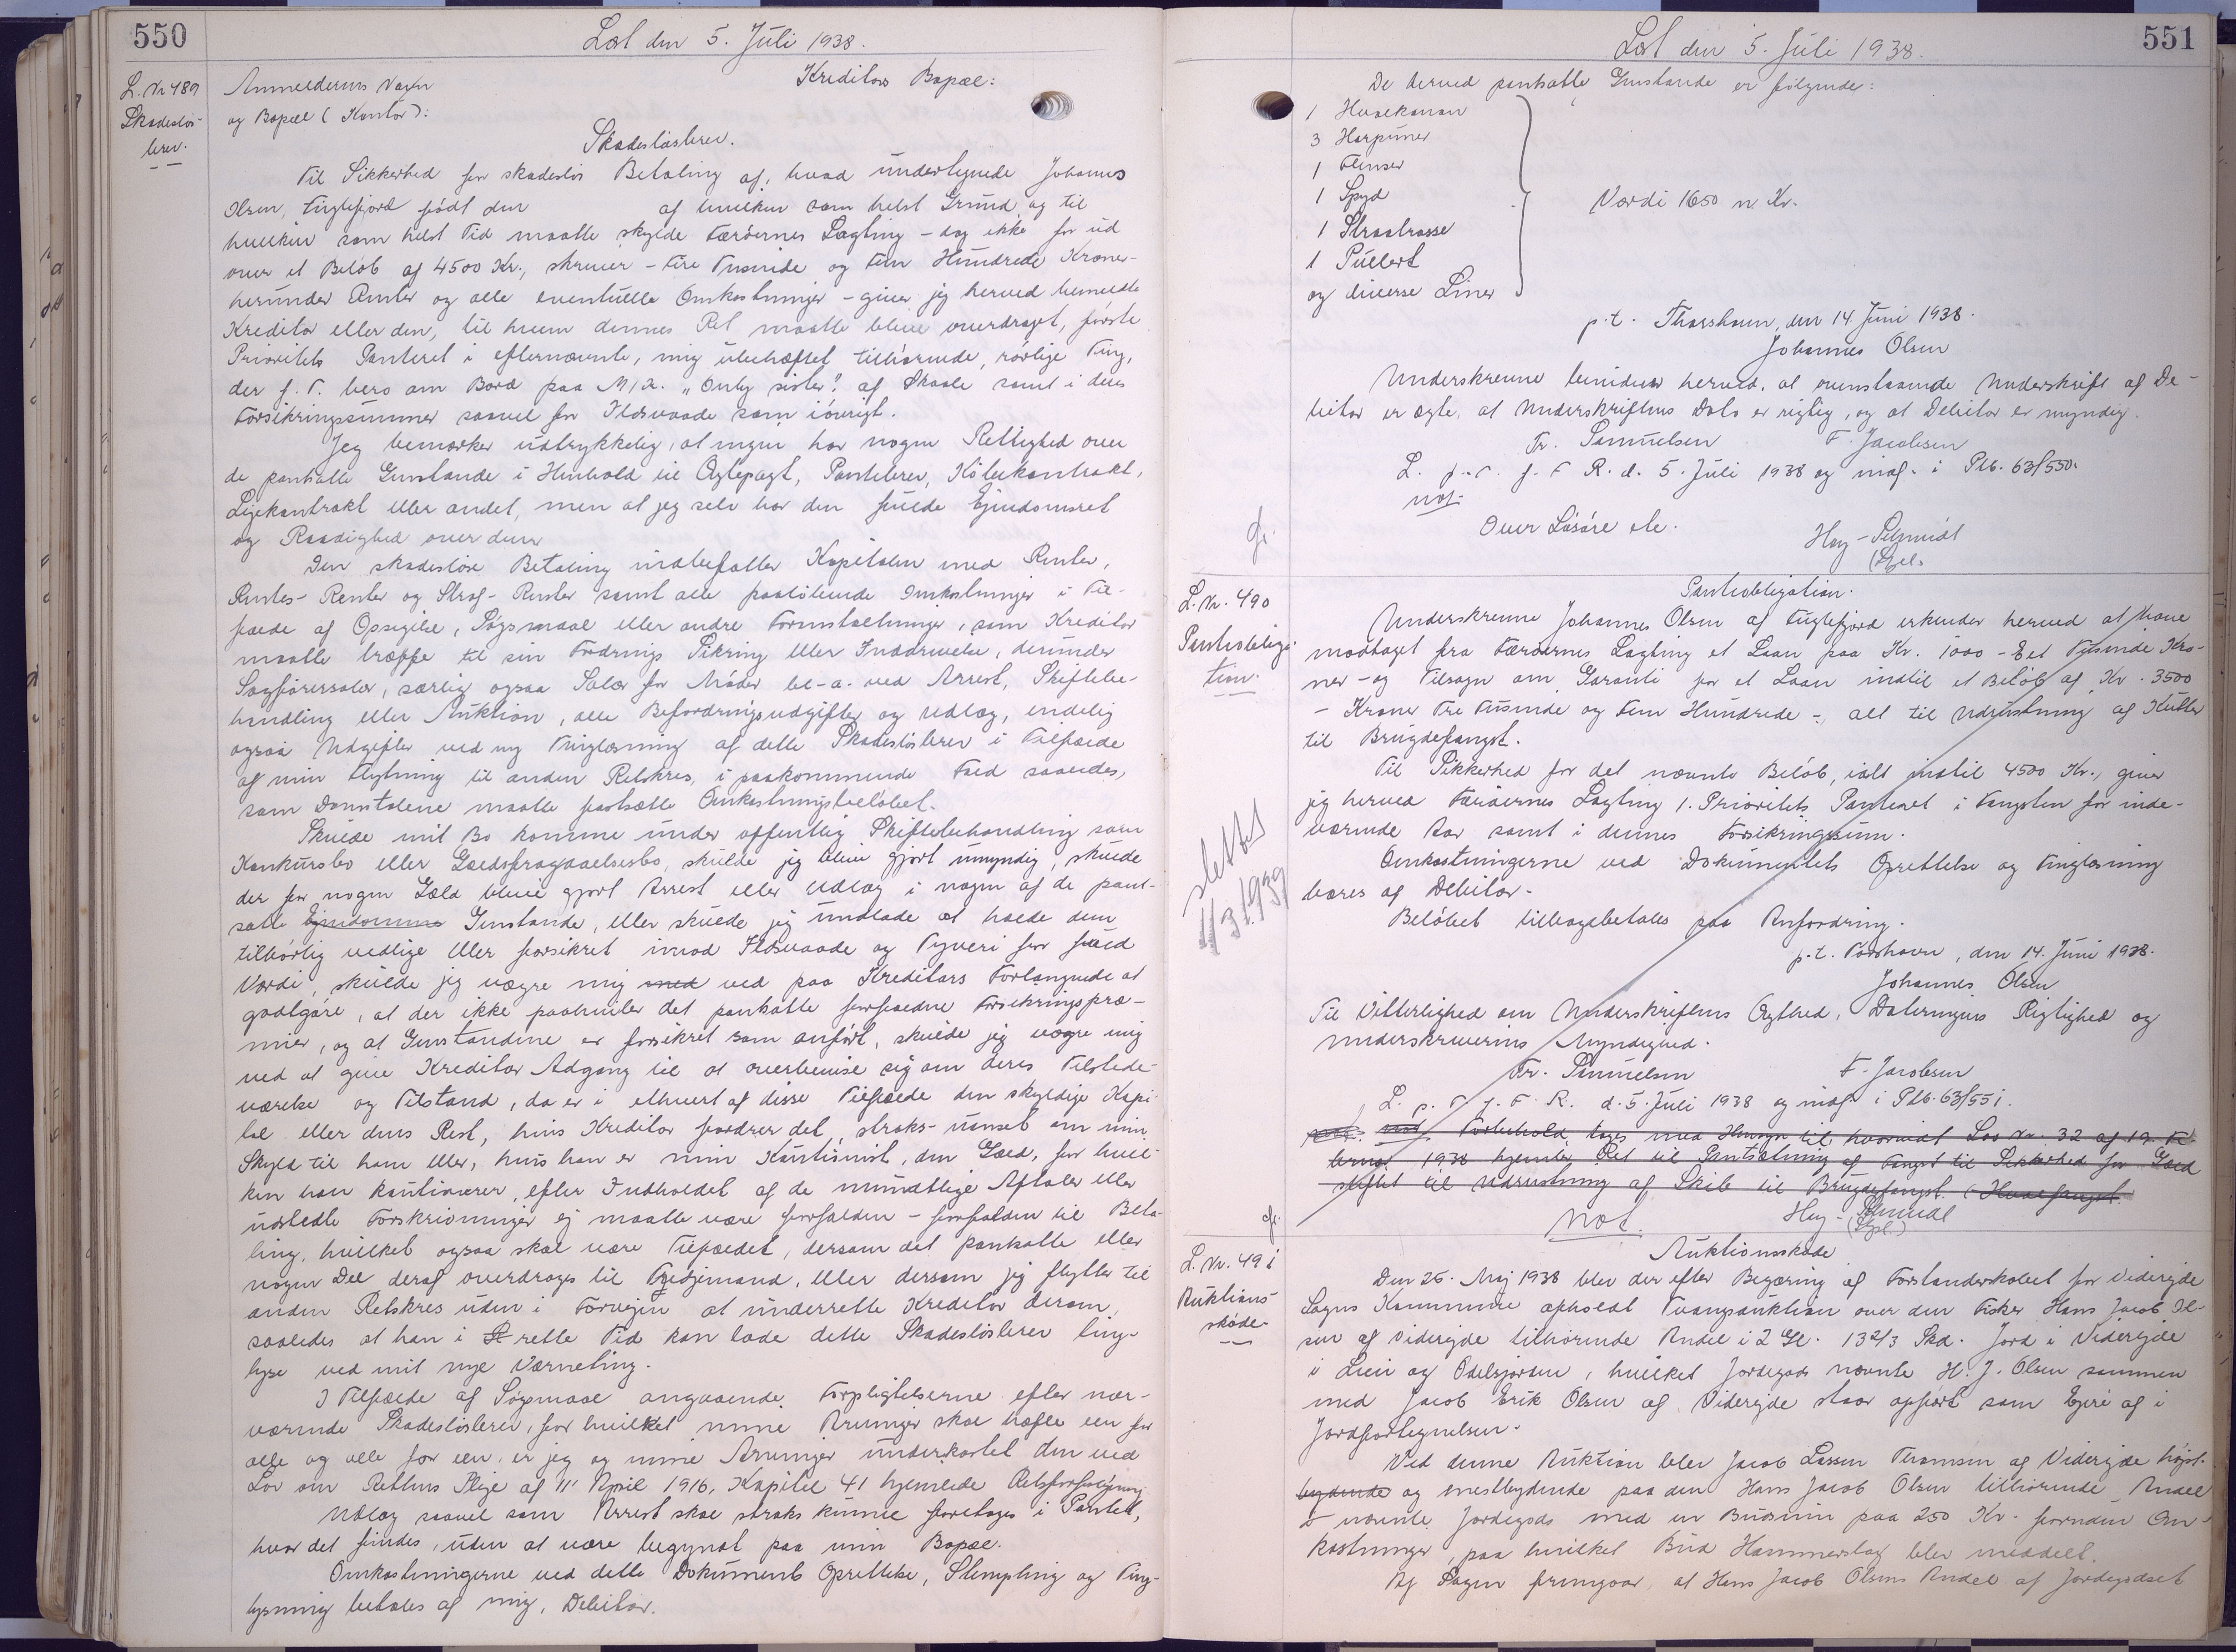 550
Læst den 5. Juli 1938.
L. Nr 489
Skadeslös-
brev.
Anmelderens Navn
og Bopæl (Kontor):
Kreditors Bopæl:
Skadeslösbrev.
Til Sikkerhed for skadeslös Betaling af, hvad undertegnede Johannes
Olsen, Fuglefjord född den af hvilken som helst Grund og til
hvilken som helst Tid maatte skylde Færöernes Lagting - dog ikke for ud
over et Belöb af 4500 Kr., skriver - Fire Tusinde og Fem Hundrede Kroner -
herunder Renter og alle eventuelle Omkostninger - giver jeg herved bemeldte
Kreditor eller den, til hvem dennes Ret maatte blive overdraget, förste
Prioritets Panteret i efternævnte, mig ubehæftet tilhörende, rörlige Ting,
der f. T. bero om Bord paa M/K. "Only sister" af Skaale samt i deres
Forsikringssummer saavel for Ildsvaade som iövrigt.
Jeg bemærker udtrykkelig, at ingen har nogen Rettighed over
de pantsatte Genstande i Henhold til Ægtepagt, Pantebrev, Köbekontrakt,
Lejekontrakt eller andet, men at jeg selv har den fulde Ejendomsret
og Raadighed over dem
Den skadeslöse Betaling indbefatter Kapitalen med Renter,
Rentes-Renter og Straf-Renter samt alle paalöbende Omkostninger i Til-
fælde af Opsigelse, Sögsmaal eller andre Foranstaltninger, som Kreditor
maatte træffe til sin Fordrings Sikring eller Inddrivelse, derunder
Sagförersalær, særlig ogsaa Salær for Möder bl-a. ved Arrest, Skiftebe-
handling eller Auktion, alle Befordringsudgifter og Udlæg, endelig
ogsaa Udgifter ved ny Tinglæsning af dette Skadeslösbrev i Tilfælde
af min Flytning til anden Retskres, i paakommende Fald saaledes,
som Domstolene maatte fastsætte Omkostningsbelöbet.
Skulde mit Bo komme under offentlig Skiftebehandling som
Konkursbo eller Gældsfragaaelsesbo, skulde jeg blive gjort umyndig, skulde
der for nogen Gæld blive gjort Arrest eller Udlæg i nogen af de pant-
satte Ejendomme Genstande, eller skulde jeg undlade at holde dem
tilbörlig vedlige eller forsikret imod Ildsvaade og Tyveri for fuld
Værdi, skulde jeg vægre mig med ved paa Kreditors Forlangende at
godtgöre, at der ikke paahviler det pantsatte forfaldne Forsikringspræ-
mier, og at Genstandene er forsikret som anfört, skulde jeg vægre mig
ved at give Kreditor Adgang til at overbevise sig om deres Tilstede-
værelse og Tilstand, da er i ethvert af disse Tilfælde den skyldige Kapi-
tal eller dens Rest, hvis Kreditor fordrer det, straks - uanset om min
Skyld til ham eller, hvis han er min Kautionist, den Gæld, for hvil-
ken han kautionerer, efter Indholdet af de mundtlige Aftaler eller
udstedte Forskrivninger ej maatte være forfalden - forfalden til Beta-
ling, hvilket ogsaa skal være Tilfældet, dersom det pantsatte eller
nogen Del deraf overdrages til Tredjemand, eller dersom jeg flytter til
anden Retskres uden i Forvejen at underrette Kreditor derom,
saaledes at han i rette Tid kan lade dette Skadeslösbrev ting-
lyse ved mit nye Værneting.
I Tilfælde af Sögsmaal angaaende Forpligtelserne efter nær-
værende Skadeslösbrev, for hvilket mine Arvinger skal hæfte een for
alle og alle for een, er jeg og mine Arvinger underkastet den ved
Lov om Rettens Pleje af 11' April 1916, Kapitel 41 hjemlede Retsforfölgning
Udlæg saavel som Arrest skal straks kunne foretages i Pantet,
hvor det findes, uden at være begyndt paa min Bopæl.
Omkostningerne ved dette Dokuments Oprettelse, Stempling og Ting-
lysning betales af mig, Debitor.
551
Læst den 5. Juli 1938.
De herved pantsatte Genstande er fölgende:
1 Hvalkanon
3 Harpuner
1 Flenser
1 Spyd
1 Straatrosse
1 Pullert
og diverse Liner
Værdi 1650 n. Kr.
p.t. Thorshavn, den 14 Juni 1938.
Johannes Olsen
Underskrevne bevidner herved, at ovenstaaende Underskrift af De-
bitor er ægte, at Underskriftens Dato er rigtig, og at Debitor er myndig.
Fr. Samuelsen F. Jacobsen
L. p. T. f. F R. d. 5. Juli 1938 og indf. i Ptb. 63/550.
not
Over Lösöre ele.
Hey-Schmidt
(Gfl.
L. Nr. 490
Panteobliga-
tion.
Panteobligation.
Underskrevne Johannes Olsen af Fuglefjord erkender herved at have
modtaget fra Færöernes Lagting et Laan paa Kr. 1000 - Eet Tusinde Kro-
ner - og Tilsagn om Garanti for et Laan indtil et Belöb af Kr. 3500
- Kroner Tre Tusinde og Fem Hundrede -, alt til Udrustning af Kutter
til Brugdefangst.
Til Sikkerhed for det nævnte Belöb, ialt indtil 4500 Kr., giver
jeg herved Færöernes Lagting 1. Prioritets Panteret i Fangsten for inde-
værende Aar samt i dennes Forsikringssum.
Omkostningerne ved Dokumentets Oprettelse og Tinglæsning
bæres af Debitor.
Belöbet tilbagebetales paa Anfordring.
slettet
1/3 1939
p.t. Torshavn, den 14. Juni 1938.
Johannes Olsen
Til Vitterlighed om Underskriftens Ægthed, Dateringens Rigtighed og
Underskriverens Myndighed.
Fr. Samuelsen F. Jacobsen
L. p. T. f. F. R. d. 5. Juli 1938 og indf. i Ptb. 63/551.
Forbehold tages med Hensyn til, hvorvidt Lov Nr. 32 af 12 Fe-
bruar 1938 hjemler Ret til Pantsætning af Fangst til Sikkerhed for Gæld
stiftet til Udrustning af Skib til Brugdefangst. (Hvalfangst.
not. Hey-Schmidt
(Gfl.)
L. Nr. 491
Auktions-
skøde
Auktionsskøde
Den 25. Maj 1938 blev der efter Begæring af Forstanderskabet for Viderejde
Sogns Kommune afholdt Tvangsauktion over den Fisker Hans Jacob Ol-
sen af Viderejde tilhörende Andel i 2 Gl. 13 2/3 Skd. Jord i Viderejde
i Lien og Odelsjorden, hvilket Jordegods nævnte H. J. Olsen sammen
med Jacob Erik Olsen af Viderejde staar opfört som Ejere af i
Jordfortegnelsen.
Ved denne Auktion blev Jacob Lassen Thomsen af Viderejde höjst-
bydende og enestbydende paa den Hans Jacob Olsen tilhörende Andel
nævnte Jordegods med en Budsum paa 250 Kr. foruden Om-
kostninger, paa hvilket Bud Hammerslag blev meddelt.
Af Sagen fremgaar, at Hans Jacob Olsens Andel af Jordegodset